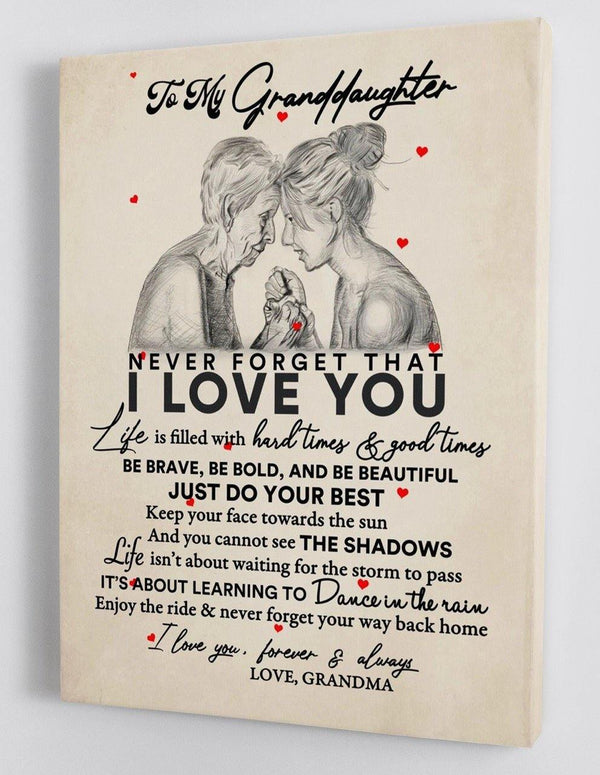 To My Granddaughter
NEVER FORGET THAT
I LOVE YOU
Life is filled with hard times & good times
BE BRAVE, BE BOLD, AND BE BEAUTIFUL
JUST DO YOUR BEST
Keep your face towards the sun
And you cannot see THE SHADOWS
Life isn't about waiting for the storm to pass
IT'S ABOUT LEARNING TO Dance in the rain
Enjoy the ride & never forget your way back home
I love you, forever & always
LOVE, GRANDMA